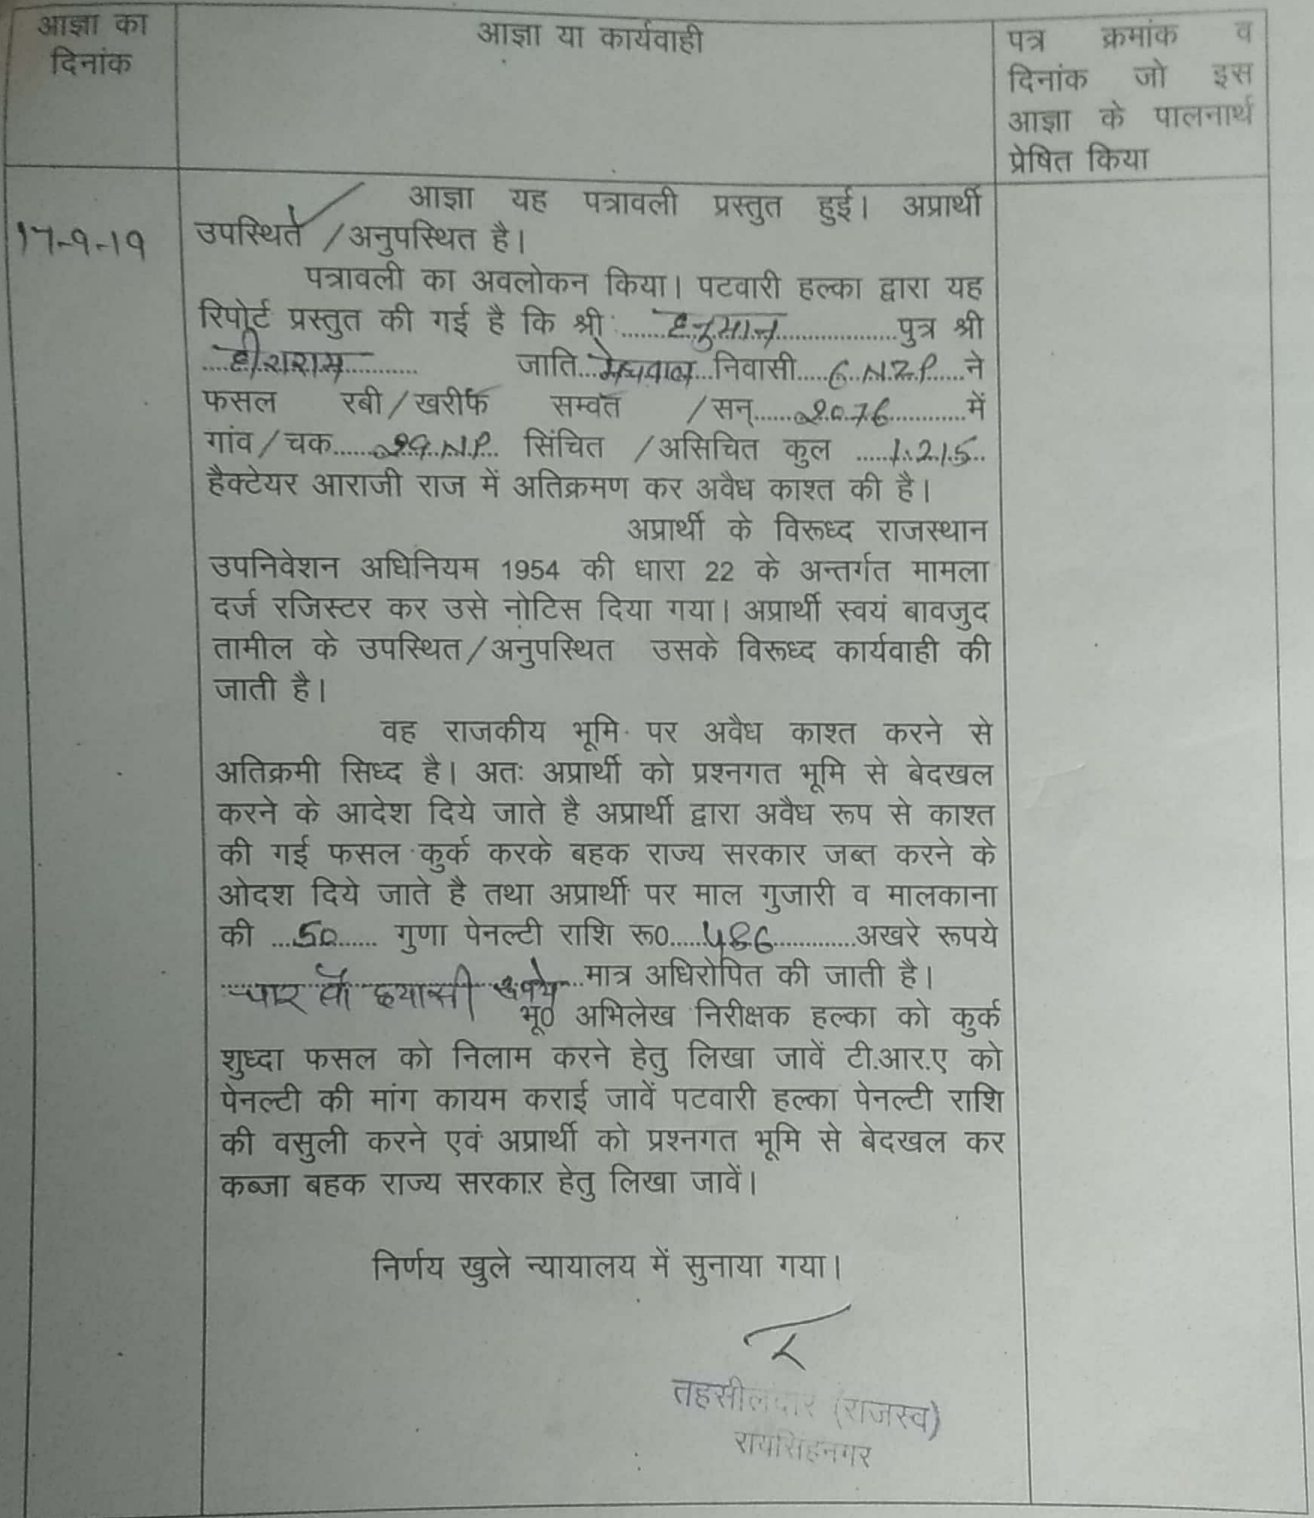 आज्ञा का
दिनांक
आज्ञा या कार्यवाही
पत्र क्रमांक व
दिनांक जो इस
आज्ञा के पालनार्थ
प्रेषित किया
17-9-19
आज्ञा यह पत्रावली प्रस्तुत हुई। अप्रार्थी
उपस्थित /अनुपस्थित है।
पत्रावली का अवलोकन किया। पटवारी हल्का द्वारा यह
रिपोर्ट प्रस्तुत की गई है कि श्री ......हनुमान..................पुत्र श्री
...हीराराम............ जाति...मेघवाल...निवासी.....6 N.Z.P......ने
फसल रबी/खरीफ सम्वत /सन्......2076...........में
गांव/चक......29 N.P... सिंचित /असिचित कुल ......1.215..
हैक्टेयर आराजी राज में अतिक्रमण कर अवैध काश्त की है।
अप्रार्थी के विरूध्द राजस्थान
उपनिवेशन अधिनियम 1954 की धारा 22 के अन्तर्गत मामला
दर्ज रजिस्टर कर उसे नोटिस दिया गया। अप्रार्थी स्वयं बावजुद
तामील के उपस्थित/अनुपस्थित उसके विरूध्द कार्यवाही की
जाती है।
वह राजकीय भूमि पर अवैध काश्त करने से
अतिक्रमी सिध्द है। अतः अप्रार्थी को प्रश्नगत भूमि से बेदखल
करने के आदेश दिये जाते है अप्रार्थी द्वारा अवैध रूप से काश्त
की गई फसल कुर्क करके बहक राज्य सरकार जब्त करने के
ओदश दिये जाते है तथा अप्रार्थी पर माल गुजारी व मालकाना
की ....50...... गुणा पेनल्टी राशि रू0.....486..............अखरे रूपये
चार सौ छयासी रूपये...मात्र अधिरोपित की जाती है।
भू0 अभिलेख निरीक्षक हल्का को कुर्क
शुध्दा फसल को निलाम करने हेतु लिखा जावें टी.आर.ए को
पेनल्टी की मांग कायम कराई जावें पटवारी हल्का पेनल्टी राशि
की वसुली करने एवं अप्रार्थी को प्रश्नगत भूमि से बेदखल कर
कब्जा बहक राज्य सरकार हेतु लिखा जावें।
निर्णय खुले न्यायालय में सुनाया गया।
तहसीलदार (राजस्व)
रायसिंहनगर